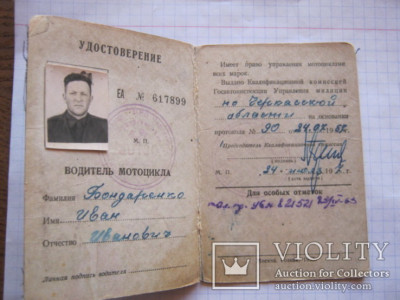 УДОСТОВЕРЕНИЕ
ЕА № 617899
М. П.
ВОДИТЕЛЬ МОТОЦИКЛА
Фамилия Бондаренко
Имя Иван
Отчество Иванович
Личная подпись водителя
Имеет право управления мотоциклом
всех марок.
Выдано Квалификационной комиссией
Госавтоинспекции Управления милиции
по Черкасской
области
на основании
протокола № 90
М. П. 24 июля
Для особых отметок
VIOLITY
Auction for Collectors
www.violity.com